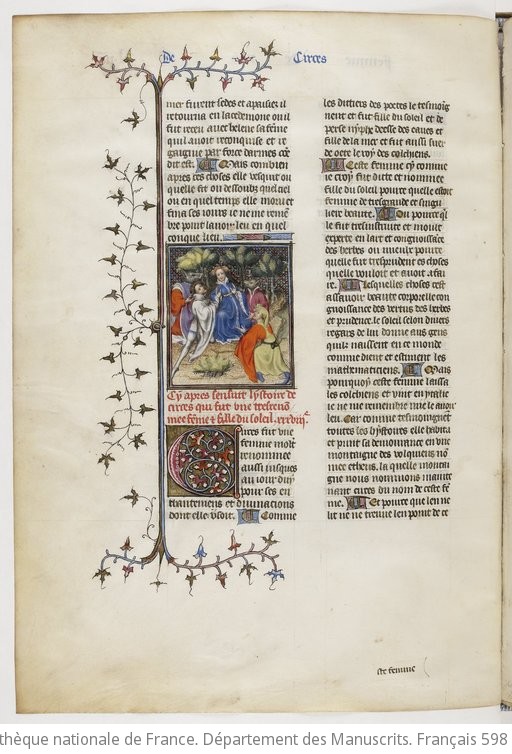 De Circes
mer furent sedes et apaisez il
retourna en lacedemone ou il
fut receu auec helene sa feme
quil auoit reconquise et re
gaignie par force darmes
dit est. Mais combien
apres ces choses elle vesquit ou
quelle fu ou dessoubz quel ciel
ou en quel temps elle mouru et
fina ses iours ie ne me remem
bre point lauoir leu en quel
conque lieu.
Cy apres sensuit lystoire de
circes qui fut vne tresreno
mee feme & fille du soleil. xxxviij.e
Circes fut vne
femme molt
renommee
aussi iusques
au iour duy
pour ses en
chantemens et diuinacions
dont elle vsoit. Comme
les dictiers des poetes le tesmoig
nent et fut fille du soleil et de
perse nymphe deesse des eaues et
fille de la mer et fut aussi suer
de oete le roy des colchiens.
Ceste femme cy comme
ie croy fut dicte et nommee
fille du soleil pource quelle estoit
femme de tresgrande et singu
liere beaute. Ou pource ql
le fut tresinstruite et moult
experte en lart et congnoissance
des herbes ou mieulx pource
quelle fut tresprudent es choses
quelle vouloit et auoit a fai
re. Lesquelles choses cest
assauoir beaute corporelle con
gnoissance des vertus des herbes
et prudence. le soleil selon diuers
regars de lui donne aus gens
qui naissent en ce monde
comme dient et estiment les
mathematiciens. Mais
pourquoy ceste femme laissa
les colchiens et vint en ytalie
ie ne me remembre mie lauoir
leu. Car comme tesmoignent
toutes les hystoires elle habita
et print sa demourance en vne
montaigne des volques no
mee etheus. la quelle montai
gne nous nommons mainte
nant circes du nom de ceste fe
me. Et pource que len ne
lit ne ne treuue len point de ce
ste femme
thèque nationale de France. Département des Manuscrits. Français 598